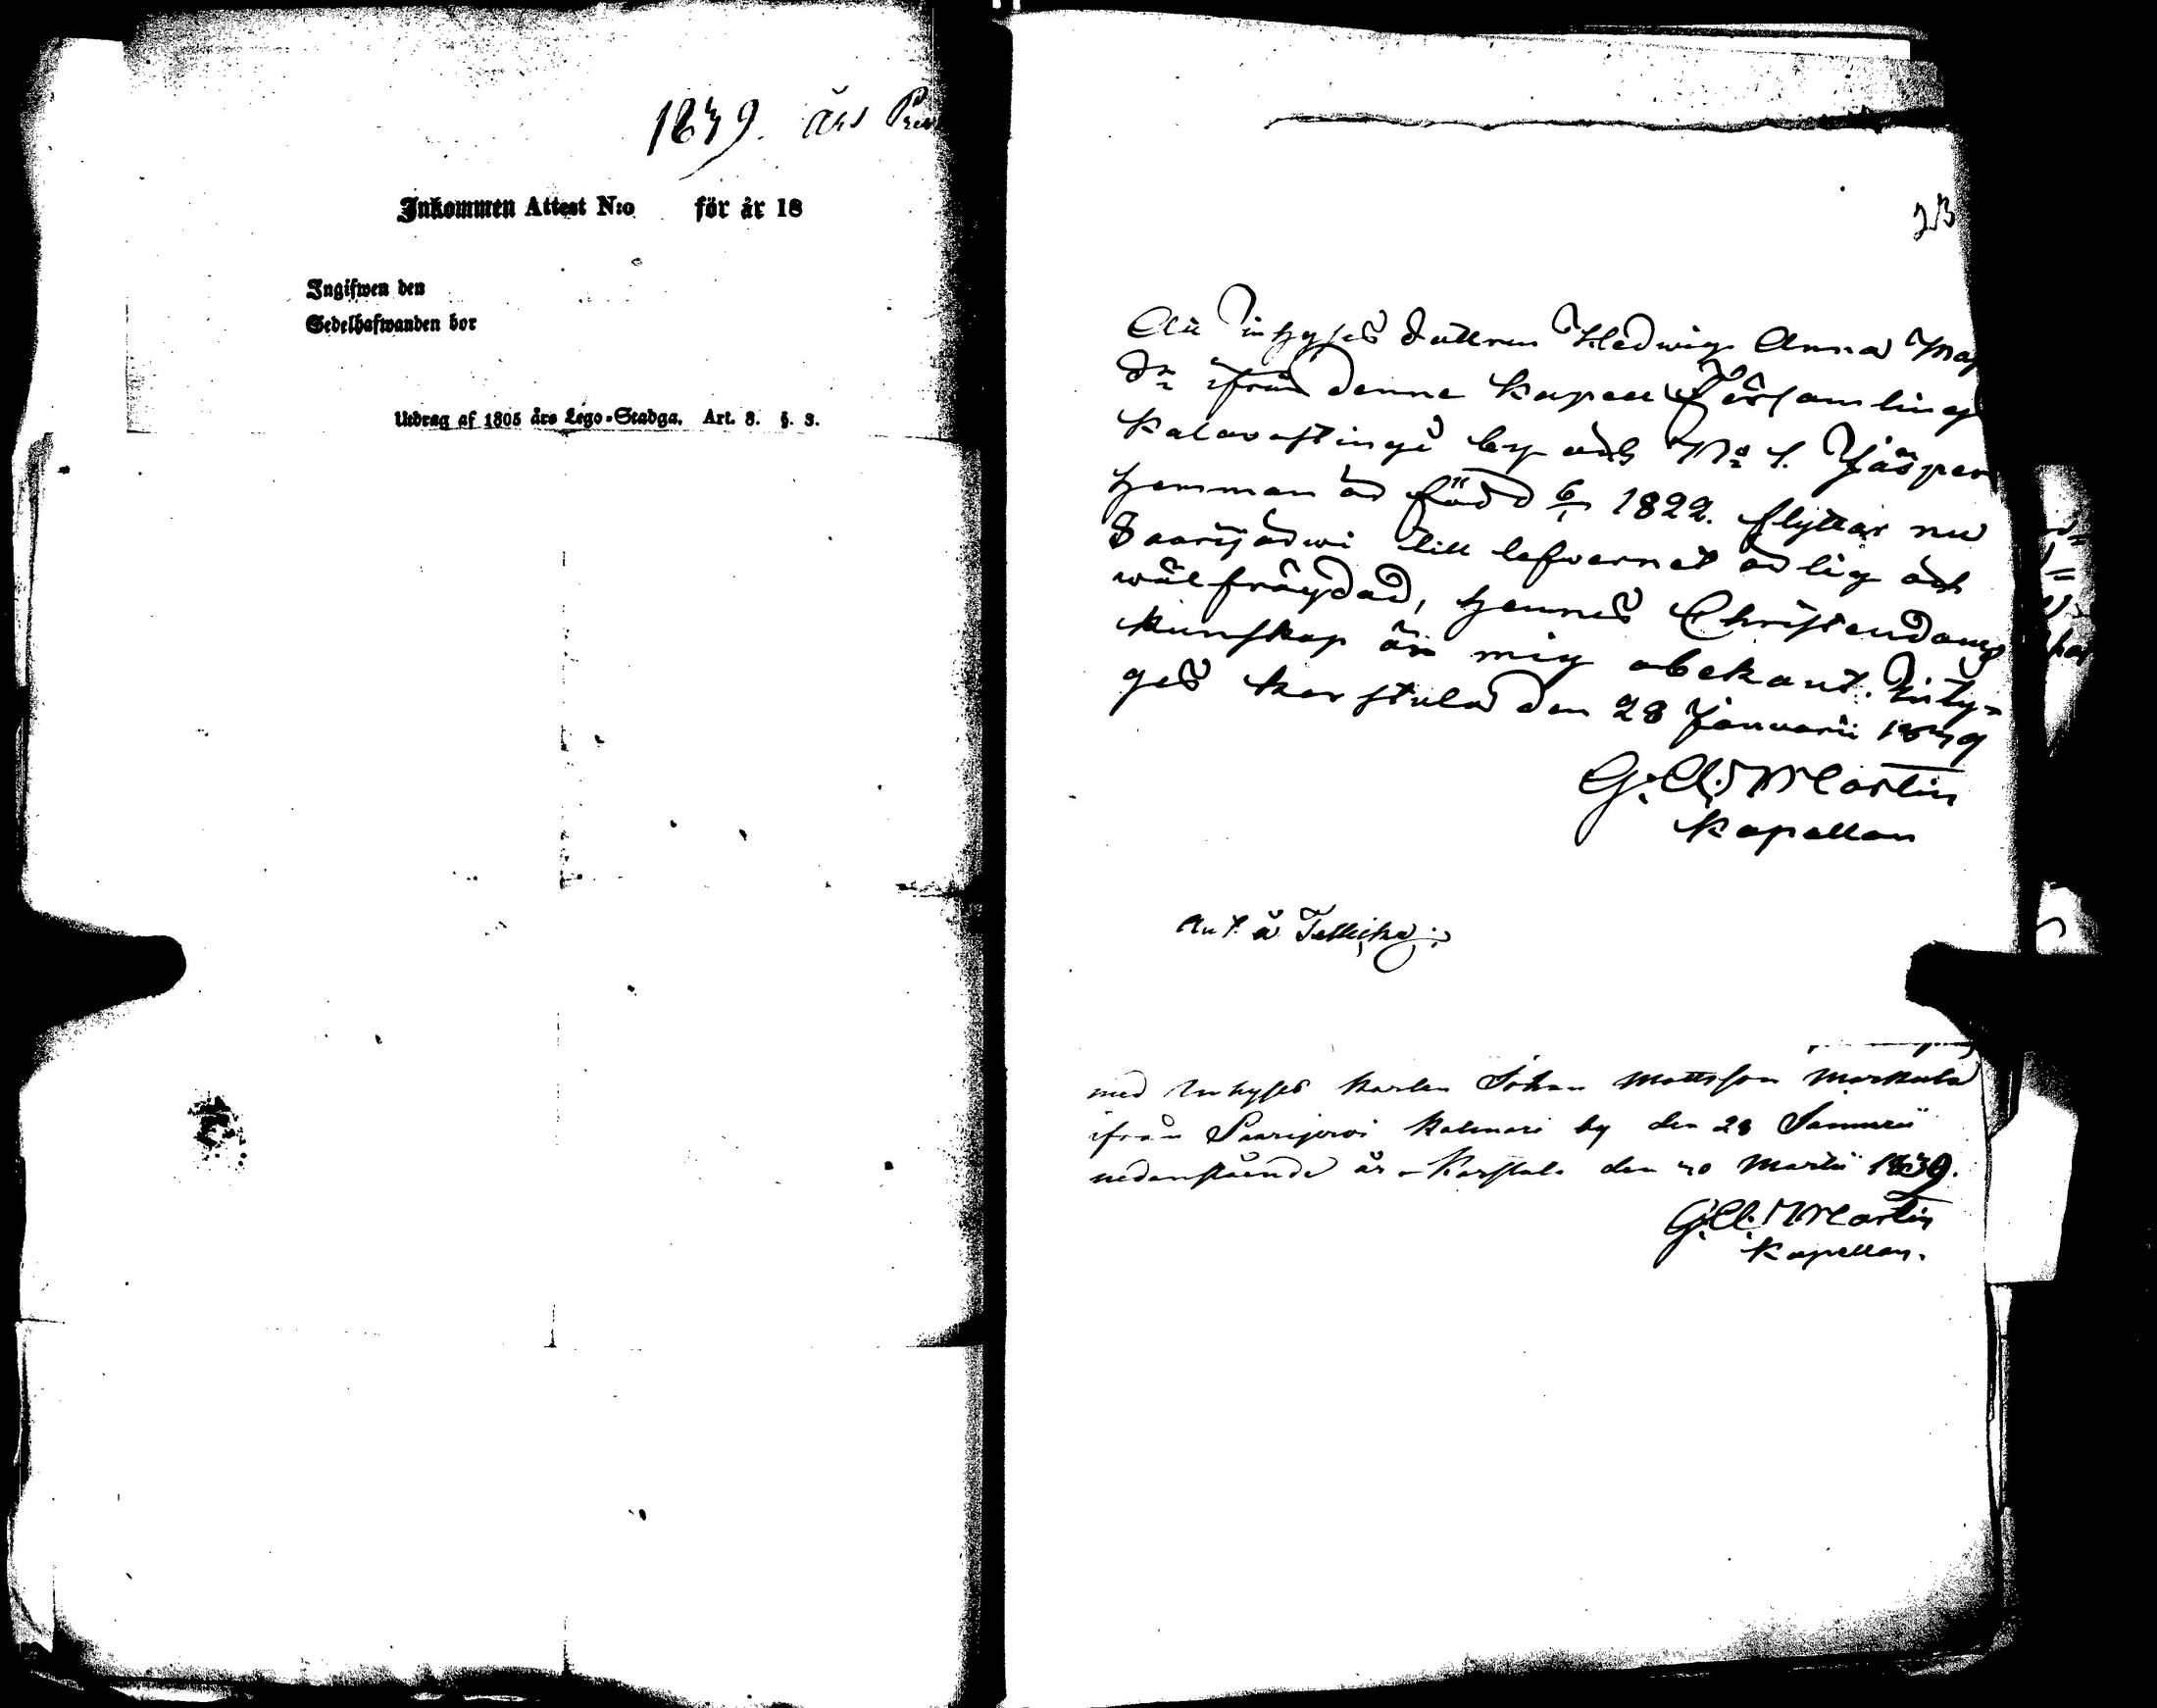 1839. års
Inkommen Attest N:o för år 18
Ingifwen den
Sedelhafwanden bor
Utdrag af 1805 års Lego-Stadga. Art. 8. §. 3.
23
Att inhyses dottren Hedwig Anna
ifrån denna Kapell Församling
by och N:o 1.
hemman är född 6/1 1822. flyttar nu
Saarijärwi till lefvernet ärlig och
wälfräydad, hennes Christendoms
kunskap är mig obekant. bity-
ges Karstula den 28 Januarii 1839
G. A. Martin
Kapellan
Ant. å
med Inhyses karlen Johan Mattsson
ifrån Saarijerwi Kalmari by den 28 Januarii
nedanstående år. Karstula den Martii 1839.
G. A. Martin
Kapellan.